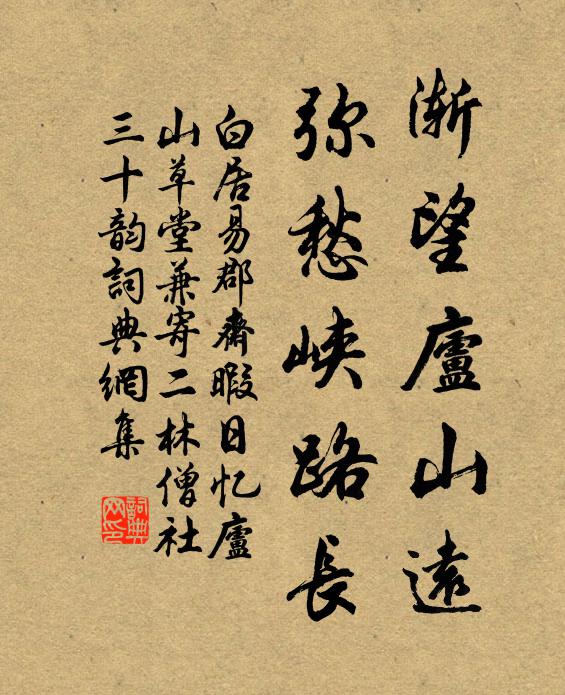 漸望廬山遠
弥愁峽路長
白居易郡齋暇日忆廬
山草堂兼寄二林僧社
三十韵詞典網集
詞典网印